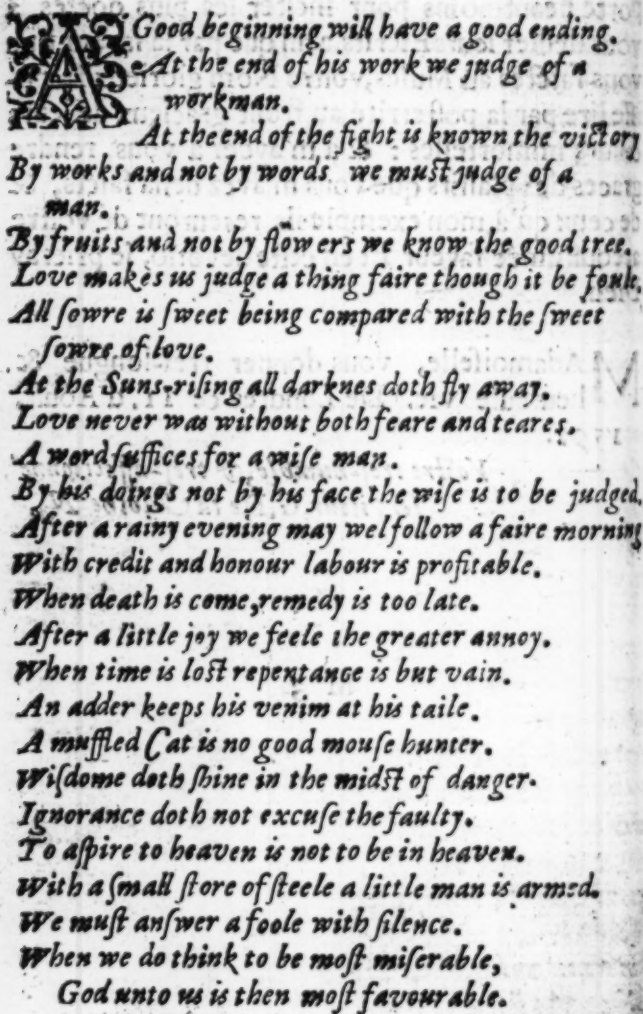 A Good beginning will have a good ending.
At the end of his work we judge of a
workman.
At the end of the fight is known the victory
By works and not by words we muſt judge of a
man.
By fruits and not by flowers we know the good tree.
Love makes us judge a thing faire though it be foule.
All ſowre is ſweet being compared with the ſweet
ſowre of love.
At the Suns-riſing all darknes doth fly away.
Love never was without both feare and teares.
A word ſuffices for a wiſe man.
By his doings not by his face the wiſe is to be judged.
After a rainy evening may wel follow a faire morning
With credit and honour labour is profitable.
When death is come, remedy is too late.
After a little joy we feele the greater annoy.
When time is loſt repentance is but vain.
An adder keeps his venim at his taile.
A muffled Cat is no good mouſe hunter.
Wiſdome doth ſhine in the midſt of danger.
Ignorance doth not excuſe the faulty.
To aſpire to heaven is not to be in heaven.
With a ſmall ſtore of ſteele a little man is armed.
We muſt anſwer a foole with ſilence.
When we do think to be moſt miſerable,
God unto us is then moſt favourable.